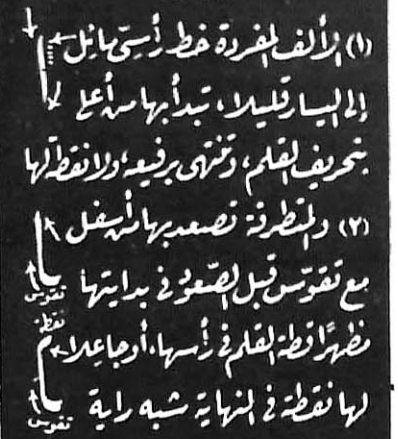 (١) الألف المفردة خط رأسيّ مائل
إلى اليسار قليلا، تبدأ بها من أعلى
بتحريف القلم، وتنتهى برفيعه، ولا نقطة لها
(٢) والمتطرفة تصعد بها من أسفل
مع تقوّس قبل الصّعود فى بدايتها
تقوس
نقطة
مظهرًا قطة القلم فى رأسها، أو جاعلا
لها نقطة فى النهاية شبه راية
تقوس